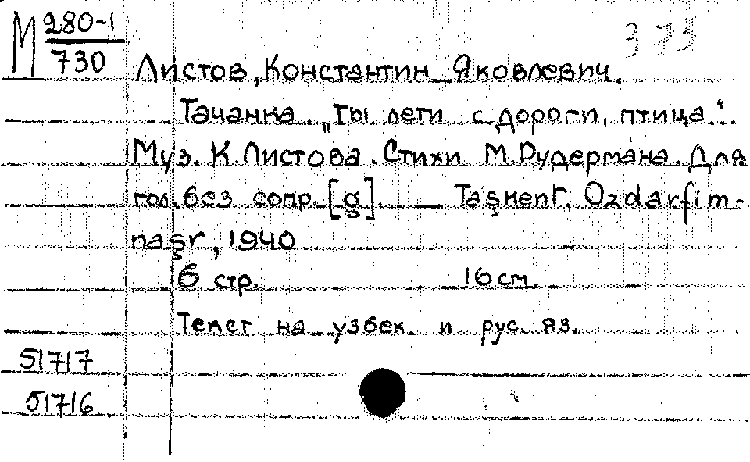 М 280-1
730
373
Листов, Константин Яковлевич.
Тачанка. „Ты лети с дороги, птица".
Муз. К. Листова. Стихи М. Рудермана. Для
гол. без сопр. [g] — Taşkent. Ozdarfim-
naşr, 1940
6 стр. 16 см.
Текст на узбек. и рус. яз.
51717
51716